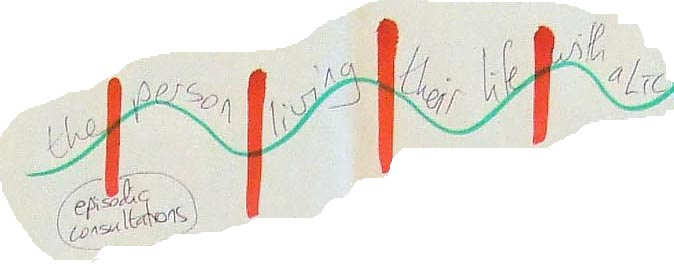 the person living their life with a LTC
episodic
consultations